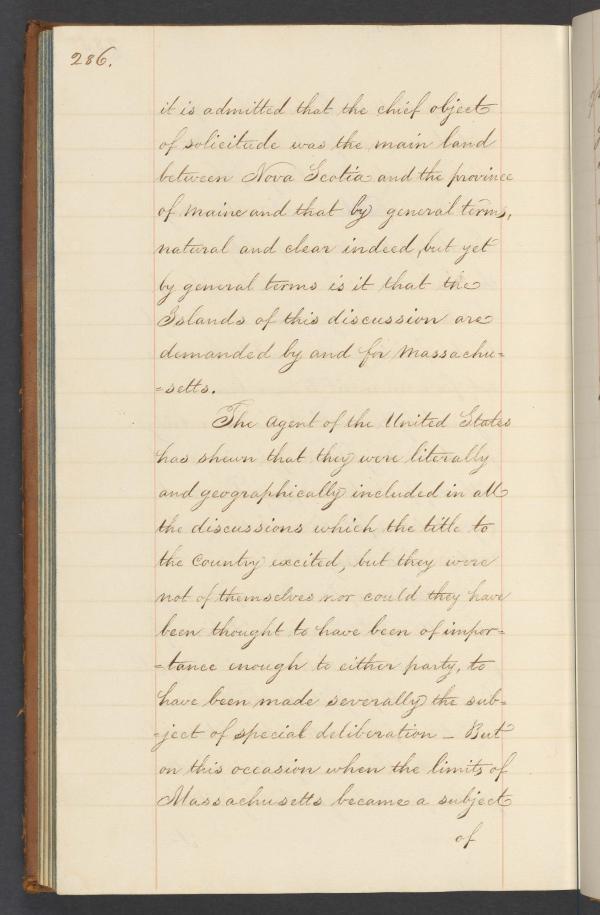 286.
it is admitted that the chief object
of solicitude was the main land
between Nova Scotia and the province
of Maine and that by general terms,
natural and clear indeed, but yet
by general terms is it that the
Islands of this discussion are
demanded by and for Massachu=
=setts.
The Agent of the United States
has shewn that they were literally
and geographically included in all
the discussions which the title to
the Country excited, but they were
not of themselves nor could they have
been thought to have been of impor=
=tance enough to either party, to
have been made severally the sub=
=ject of special deliberation - But
on this occasion when the limits of
Massachusetts became a subject
of